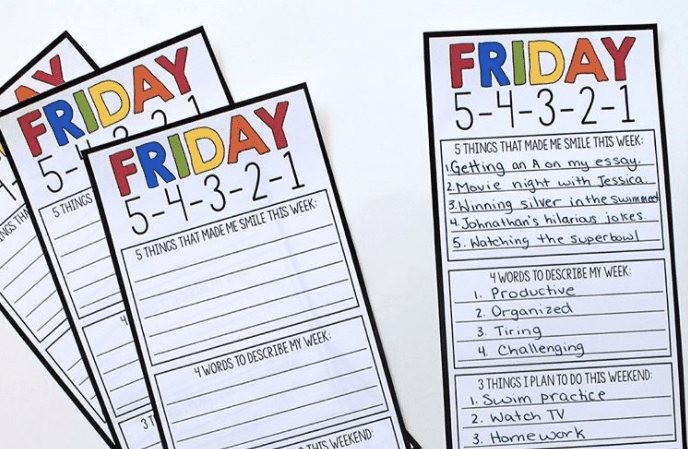 FRIDAY
5-4-3-2-1
5 THINGS
FRIDAY
5-4-3-2-1
5 THINGS THAT MADE ME SMILE THIS WEEK:
4 WORDS TO DESCRIBE MY WEEK:
THIS WEEKEND:
FRIDAY
5-4-3-2-1
5 THINGS THAT MADE ME SMILE THIS WEEK:
1. Getting an A on my essay.
2. Movie night with Jessica.
3. Winning silver in the swim meet
4. Johnathan's hilarious jokes.
5. Watching the superbowl
4 WORDS TO DESCRIBE MY WEEK:
1. Productive
2. Organized
3. Tiring
4. Challenging
3 THINGS I PLAN TO DO THIS WEEKEND:
1. Swim practice
2. Watch TV
3. Homework